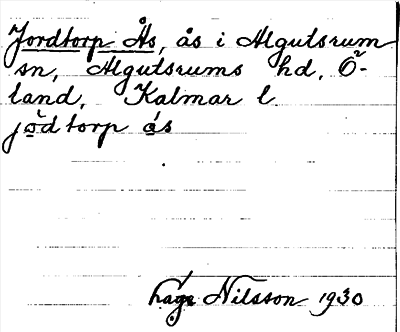 Jordtorp Ås, ås i Algutsrum
sn, Algutsrums hd, Ö-
land, Kalmar l
jo̊̄dtorp ås
Låge Nilsson 1930